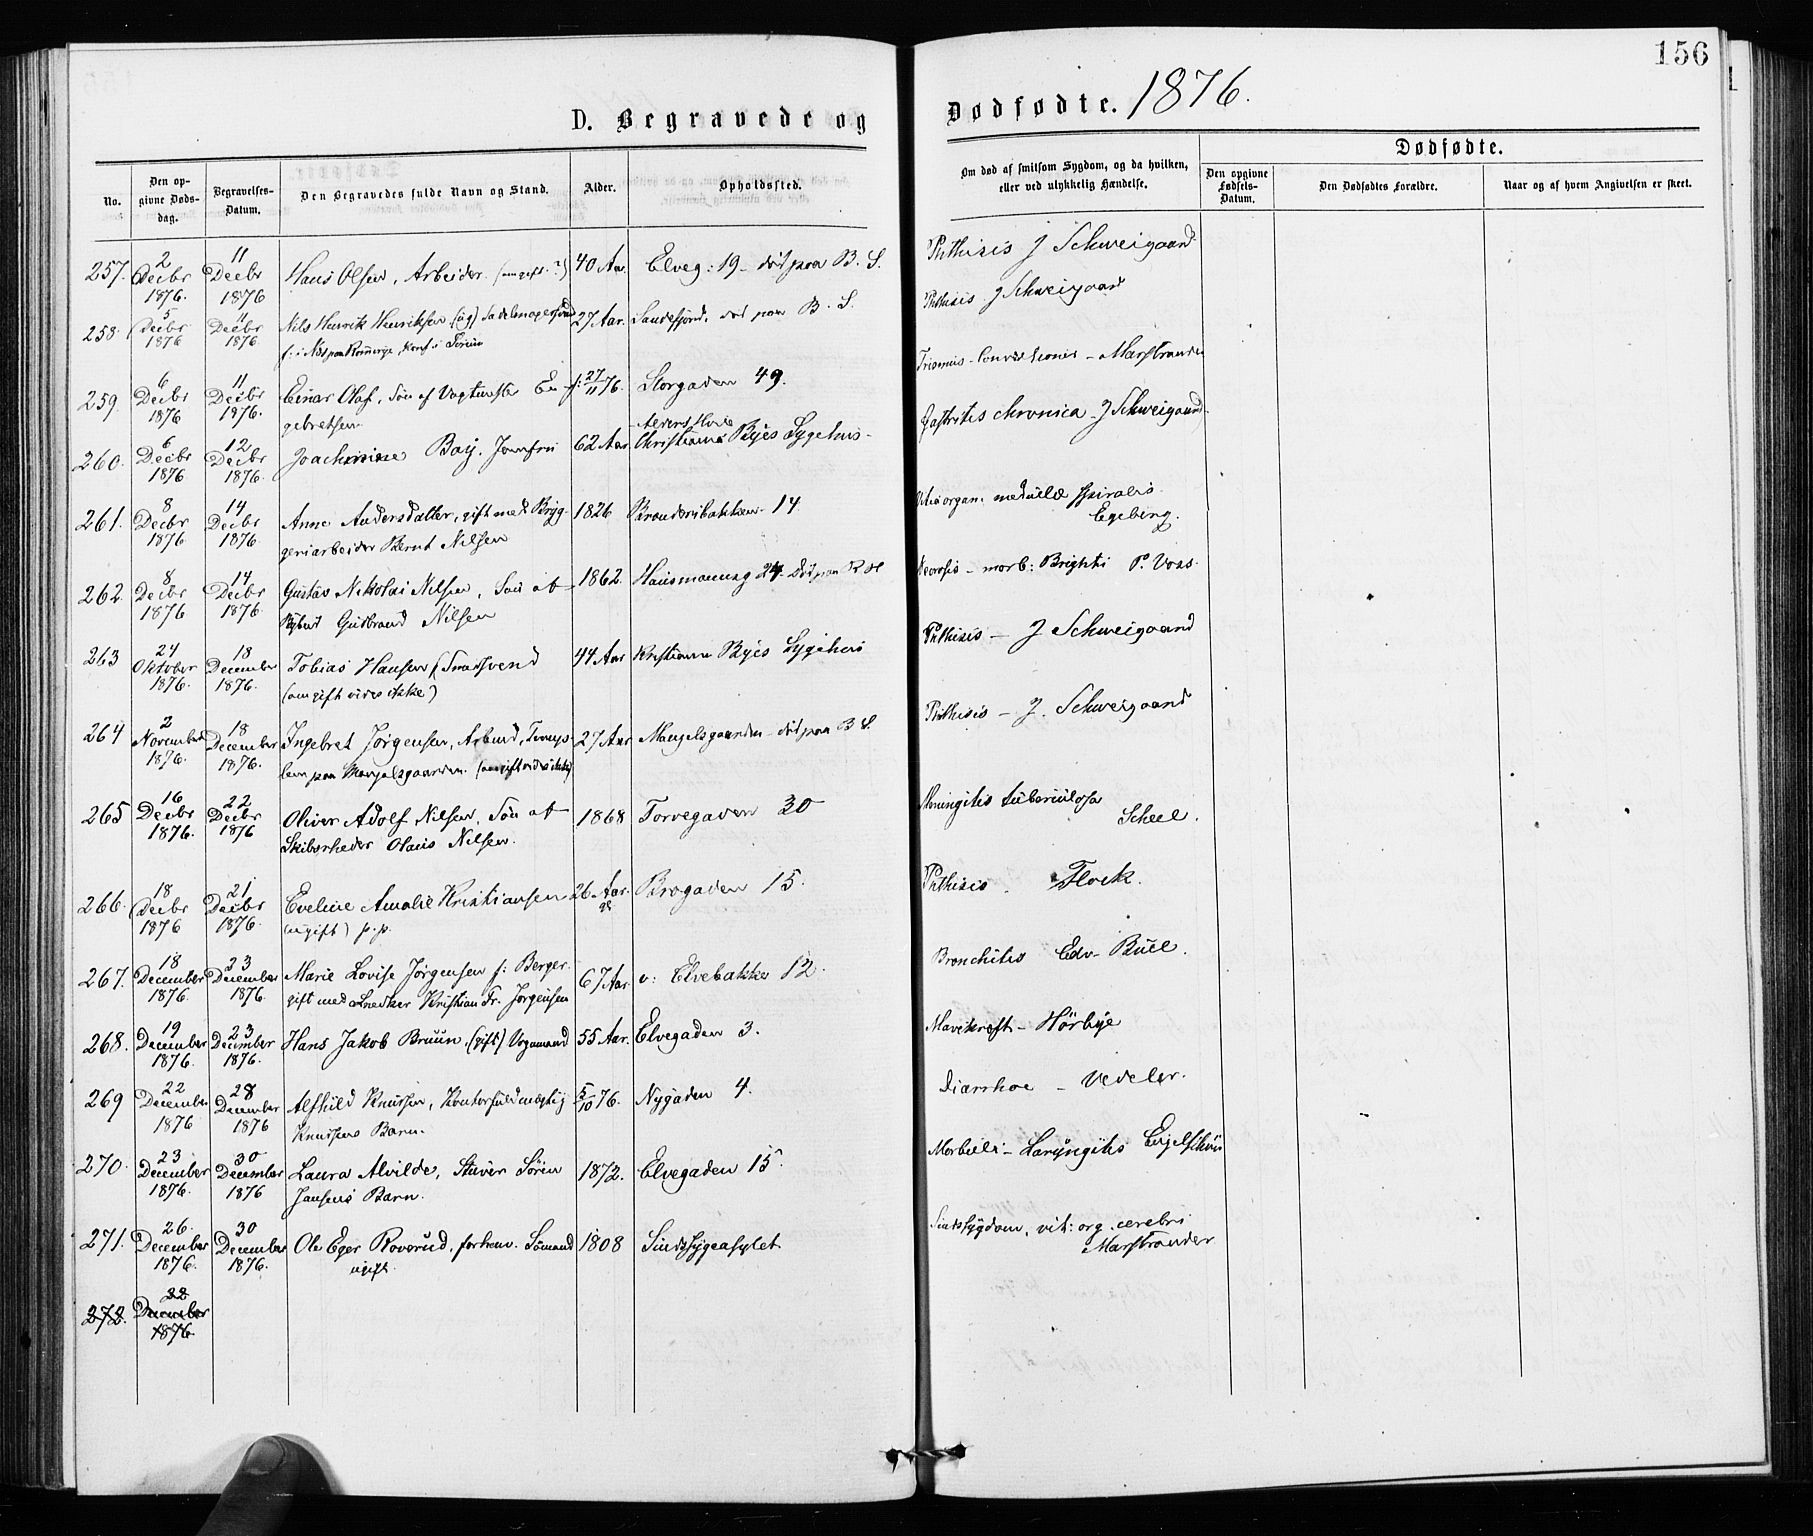 156
D. Begravede og Dødfødte. 1876.
No.
Den opgivne Dødsdag.
Begravelses-Datum.
Den Begravedes fulde Navn og Stand.
Alder.
Opholdssted.
Om død af smitsom Sygdom, og da hvilken, eller ved ulykkelig Hændelse.
Dødfødte.
Den opgivne Fødsels-Datum.
Den Dødfødtes Forældre.
Naar og af hvem Angivelsen er skeet.
257. 2 Decbr 1876. 11 Decbr 1876 Hans Olsen, Arbeider. (om gift ?) 40 Aar. Elveg: 19 – død paa B. S. Phthisis J Schweigaard
258. 5 Decbr 1876 11 Decbr 1876. Nils Henrik Henriksen (ug) Sadelmagersvend 27 Aar. Sandefjord, død paa B. S. Phthisis J Schweigaard
f: i Næs paa Romerige, konf. i
259. 6 Decbr 1876 11 Decbr 1876. Einar Olaf, Søn af Vagtmester En- f: 27/11 76. Storgaden 49. Trismus – Marstrander
gebretsen
260. 6 Decbr 1876 12 Decbr 1876. Joachimine Bay. Jomfru 62 Aar Christiania Byes Sygehus – Gastritis chronica – J Schweigaard
261. 8 Decbr 1876 14 Decbr 1876. Anne Andersdatter, gift med Bryg- 1826 Brenderibakken 14. organ. medullæ spinalis
geriarbeider Bernt Nilsen Egeberg.
262. 8 Decbr 1876 14 Decbr 1876. Gustav Nikolai Nilsen, Søn af 1862. Hausmannsg 24. Død paa R H – morb: Brighti P. Voss.
Gudbrand Nilsen
263 24 Oktober 1876. 18 December 1876. Tobias Hansen (Smedsvend 44 Aar Kristiania Byes Sygehus Phthisis – J Schweigaard
(om gift vides ikke)
264 2 November 1876. 18 December 1876. Ingebret Jørgensen, Arbmd, 27 Aar Mangelsgaarden – død paa B S. Phthisis – J. Schweigaard
lem paa Mangelsgaarden. (om gift vides ikke)
265 16 Decbr 1876. 22 Decbr 1876 Oliver Adolf Nilsen, Søn af 1868 Torvegaden 30 Meningitis tuberculosa
Skibsrheder Olaus Nilsen. Scheel.
266. 18 Decbr 1876 21 Decbr 1876. Eveline Amalie Kristiansen 26 Aar. Brogaden 15. Phthisis. Flock.
(ugift) p.p.
267. 18 December 1876. 23 December 1876. Marie Lovise Jørgensen f: Berger. 67 Aar. v: Elvebakke 12. Bronchitis Edv. Bull.
gift med Snedker Kristian Fr. Jørgensen
268. 19 December 1876. 23 December 1876. Hans Jakob Bruun, (gift) Vognmand 55 Aar. Elvegaden 3. Mavekreft – Hørbye
269 22 December 1876 28 December 1876 Alfhild Knudsen, Kontorfuldmægtig 5/10 76. Nygaden 4. Diarrhoe – Vedeler.
Knudsens Barn.
270. 23 December 1876. 30 December 1876 Laura Alvilde, Stuver Sören 1872. Elvegaden 15. Morbilli – Laryngitis Engelschiøn
Jansens Barn.
271. 26. December 1876. 30 December 1876. Ole Eger Roverud, forhenv. Sømand 1808 Sindssygeasylet Sindssygdom, vit: org. cerebri
ugift. Marstrander
272. 22 December 1876.